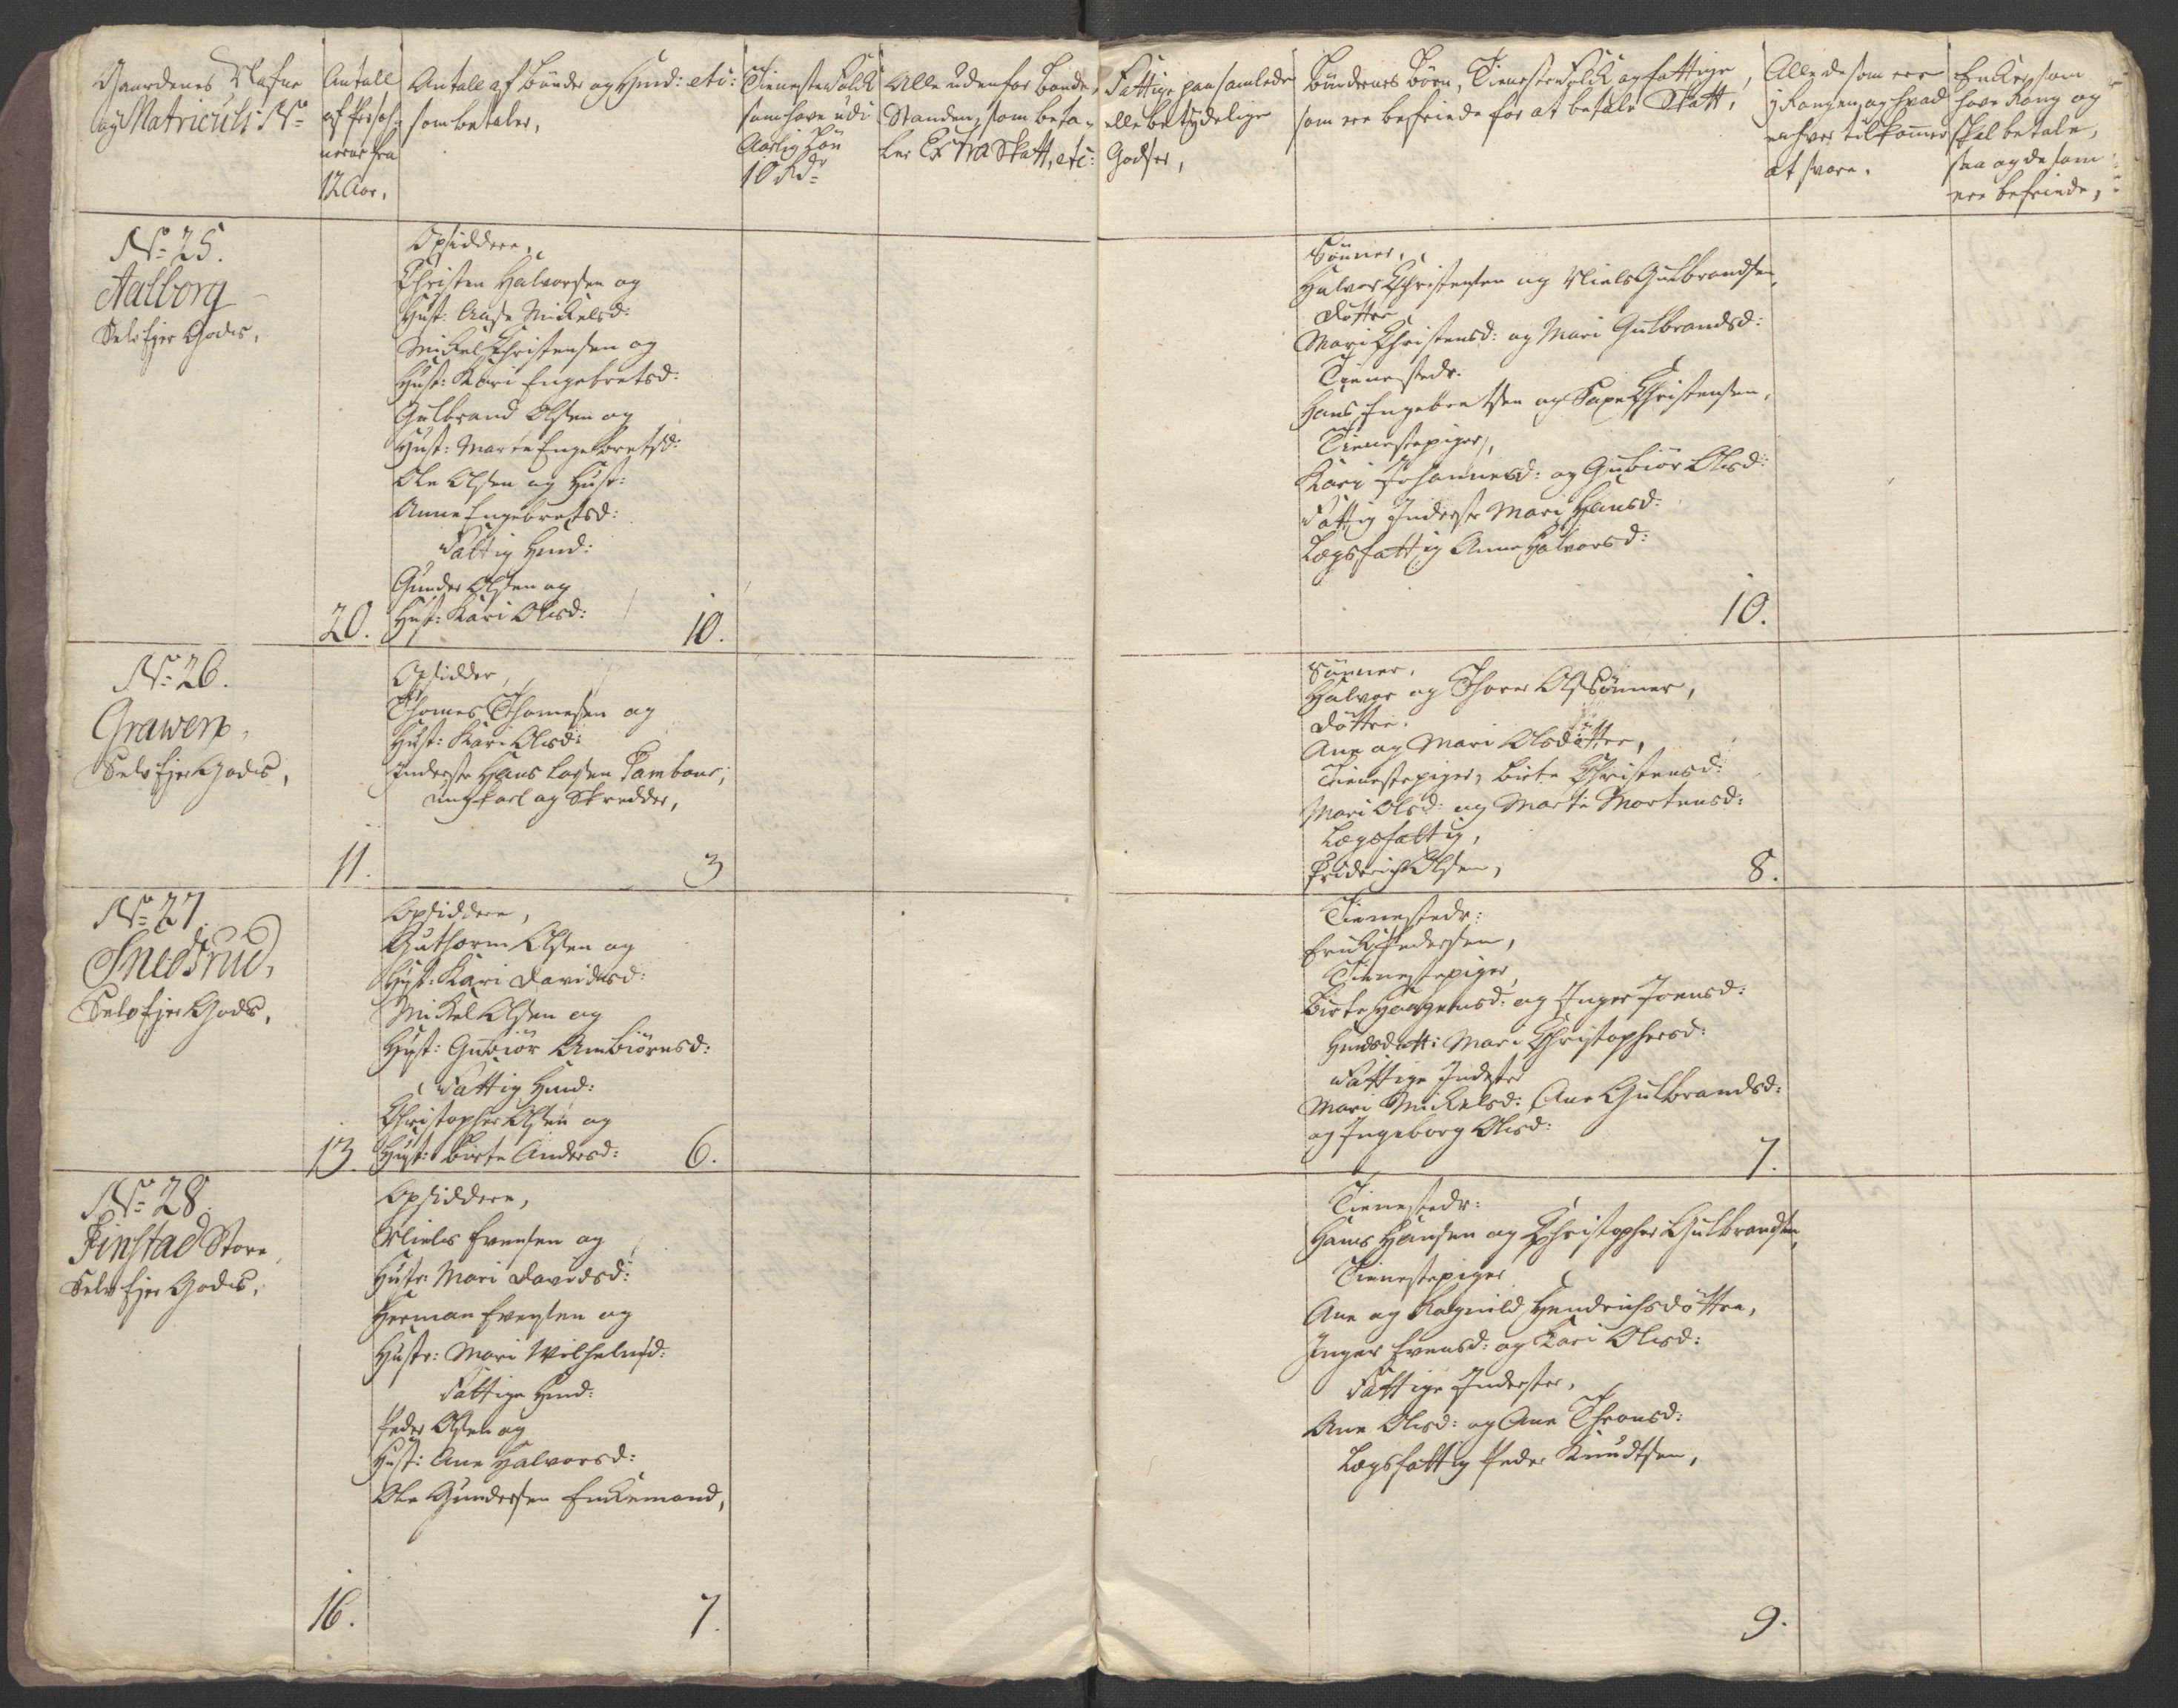 Gaardenes Nafne
og Matriculs No
Antall
af Perso-
ner fra
12 Aar.
Antall af bønder og Huusm: etc:
som betaler,
Tieneste Folck
som have udi
Aarlig Løn
10 Rd
Alle uden for bonde
Standen, som beta-
ler Extra Skatt, etc:
Fattige paa samlede
elle betydelige
Godser,
Bøndernes Børn, Tieneste Folck og fattige,
som ere befriede for at betale Skatt,
Alle de som ere
i Rangen, og hvad
enhver tilkommer
at svare.
Enker, som
have Rang og
skal betale,
saa og de som
ere befriede,
No 25.
Aalborg
Selv Ejer Gods,
20.
Opsiddere,
Christen Halvorsen og
Hust: Anne Mickelsd:
Mickel Christensen og
Hust: Kari Engebretsd:
Gulbrand Olsen og
Hust: Marte Engebretsd:
Ole Olsen og Hust:
Anne Engebretsd:
Fattig Huusm:
Gunder Olsen og
Hust: Kari Olisd:
10.
Sønner,
Halvor Christensen og Niels Gulbrandsen,
Døttre
Mari Christensd: og Mari Gulbrandsd:
Tienestedr.
Hans Engebretsen og Saxe Christensen,
Tienestepiger,
Kari Johannesd: og Gubiør Olisd:
Fattig Inderste Mari Hansd:
Lægsfattig Anne Halvorsd:
10.
No 26.
Grawem,
Selv Ejer Gods,
11.
Opsidder,
Thomes Thomesen og
Hust: Kari Olisd:
Inderste Hans Larsen Tambour,
ungkarl og Skredder,
3
Sønner,
Halvor og Thorer Olssønner,
Døttre.
Ane og Mari Olsdøtter,
Tienestepiger, Birte Christensd:
Mari Olsd: og Marte Mortensd:
Lægsfattig,
Friderich Olsen,
8.
No 27.
Snedsrud,
Selv Ejer Gods,
13.
Opsiddere,
Guthorm Olsen og
Hust: Kari Davidsd:
Mickel Olsen og
Hust: Gubiør Ambiørnsd:
Fattig Huusm:
Christopher Olsen og
Hust: Birte Andersd:
6.
Tienestedr:
Erick Pedersen,
Tienestepiger,
Birte Haagensd: og Inger Joensd:
Huusdatt: Mari Christophersd:
Fattige Inderster
Mari Mickelsd: Ane Gulbrandsd:
og Ingeborg Olisd:
7.
No 28.
Finstad Store,
Selv Ejer Gods,
16.
Opsiddere,
Niels Evensen og
Hustr: Mari Davidsd:
Herman Evensen og
Hustr: Mari Wilhelmsd:
Fattige Huusm:
Peder Olsen og
Hust: Ane Halvorsd:
Ole Gundersen Enkemand,
7.
Tienestedr:
Hans Hansen og Christopher Gulbrandsen,
Tienestepiger
Ane og Ragnild Hendrichsdøttre,
Inger Evensd: og Kari Olisd:
Fattige Inderster,
Ane Olisd: og Ane Thronsd:
Lægsfattig Peder Knudtsen,
9.